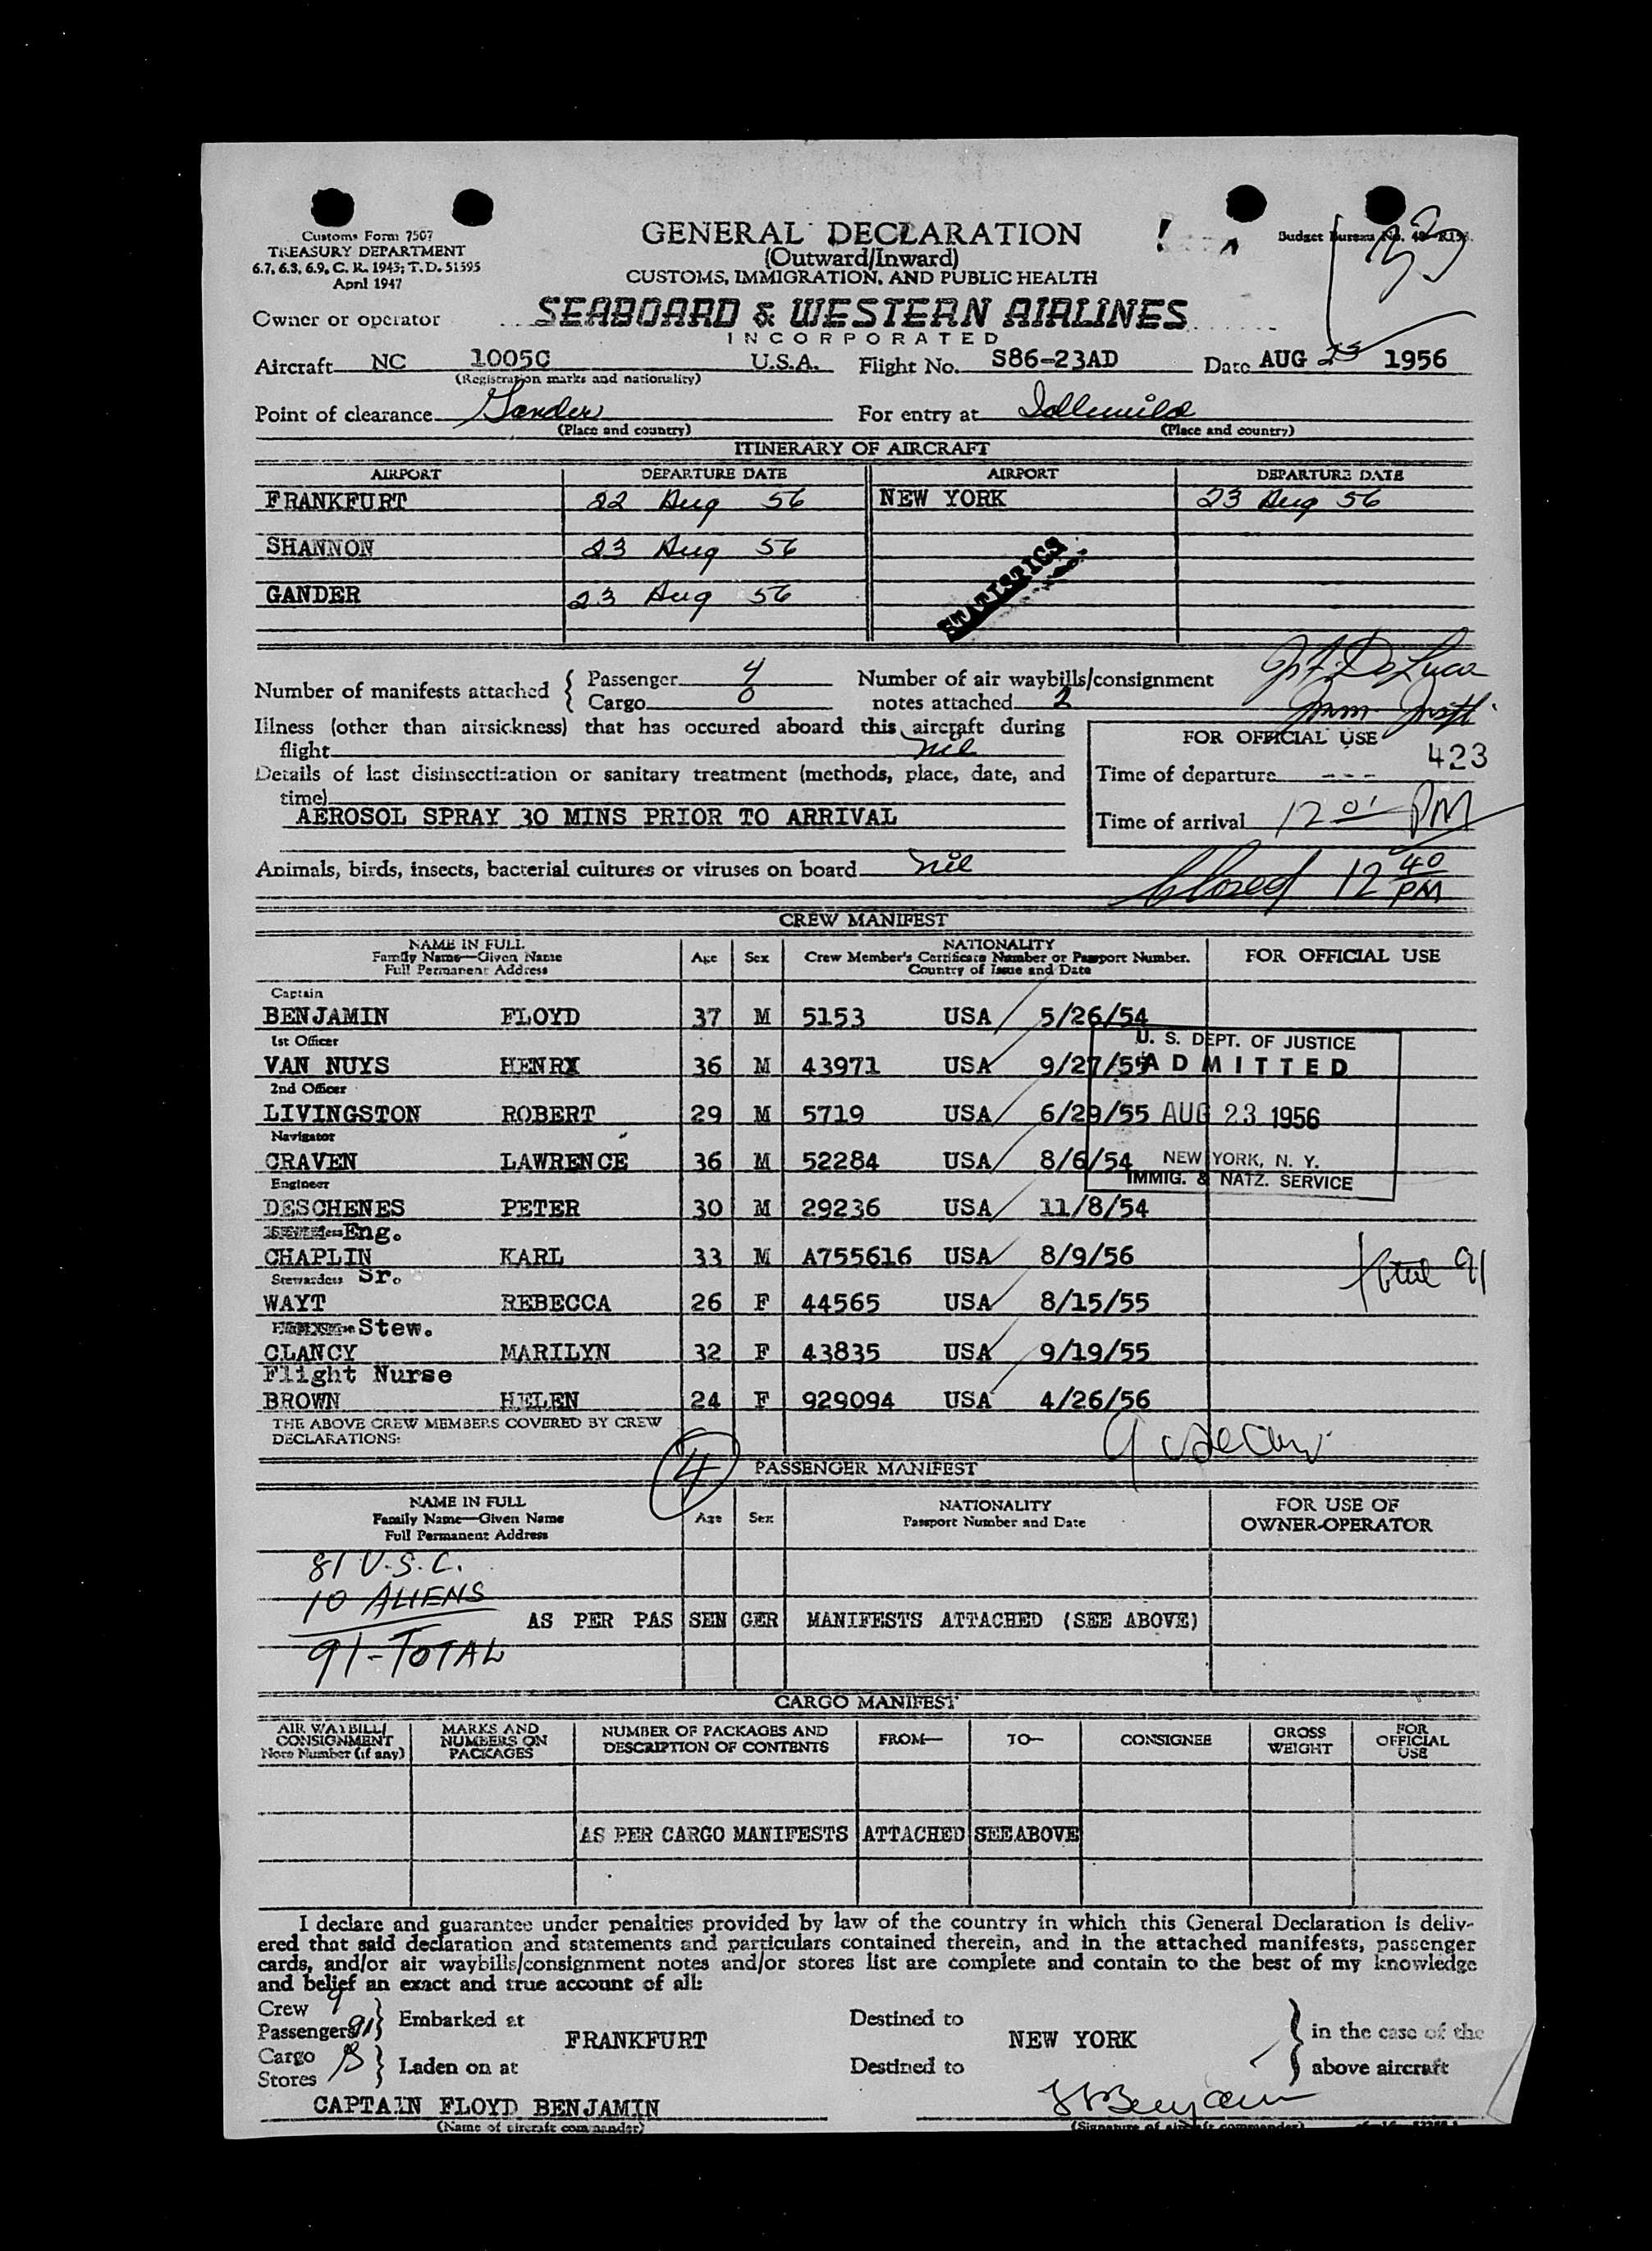 Customs Form 7507
TREASURY DEPARTMENT
6.7, 6.8, 6.9, C. R. 1943; T. D. 51595
April 1947
GENERAL DECLARATION
(Outward/Inward)
CUSTOMS, IMMIGRATION, AND PUBLIC HEALTH
Budget Bureau No.
Owner or operator SEABOARD & WESTERN AIRLINES
INCORPORATED
Aircraft NC 1005C U.S.A. Flight No. S86-23AD Date AUG 23 1956
(Registration marks and nationality)
Point of clearance Gander For entry at Idlewild
(Place and country) (Place and country)
ITINERARY OF AIRCRAFT
AIRPORT DEPARTURE DATE AIRPORT DEPARTURE DATE
FRANKFURT 22 Aug 56 NEW YORK 23 Aug 56
SHANNON 23 Aug 56
GANDER 23 Aug 56
STATISTICS
Number of manifests attached { Passenger 4 Number of air waybills/consignment
Cargo 0 notes attached 2
Illness (other than airsickness) that has occured aboard this aircraft during
flight nil
FOR OFFICIAL USE
423
Details of last disinsectization or sanitary treatment (methods, place, date, and
time)
AEROSOL SPRAY 30 MINS PRIOR TO ARRIVAL
Time of departure ---
Time of arrival 12 01 PM
Animals, birds, insects, bacterial cultures or viruses on board nil
Closed 12 40 PM
CREW MANIFEST
NAME IN FULL
Family Name—Given Name
Full Permanent Address
Age Sex
NATIONALITY
Crew Member's Certificate Number or Passport Number.
Country of Issue and Date
FOR OFFICIAL USE
Captain
BENJAMIN FLOYD 37 M 5153 USA 5/26/54
1st Officer
VAN NUYS HENRY 36 M 43971 USA 9/27/55
2nd Officer
LIVINGSTON ROBERT 29 M 5719 USA 6/29/55
Navigator
CRAVEN LAWRENCE 36 M 52284 USA 8/6/54
Engineer
DESCHENES PETER 30 M 29236 USA 11/8/54
Eng.
CHAPLIN KARL 33 M A755616 USA 8/9/56
Stewardess Sr.
WAYT REBECCA 26 F 44565 USA 8/15/55
Stew.
CLANCY MARILYN 32 F 43835 USA 9/19/55
Flight Nurse
BROWN HELEN 24 F 929094 USA 4/26/56
U. S. DEPT. OF JUSTICE
ADMITTED
AUG 23 1956
NEW YORK, N. Y.
IMMIG. & NATZ. SERVICE
total 91
THE ABOVE CREW MEMBERS COVERED BY CREW
DECLARATIONS:
4
PASSENGER MANIFEST
NAME IN FULL
Family Name—Given Name
Full Permanent Address
Age Sex
NATIONALITY
Passport Number and Date
FOR USE OF
OWNER-OPERATOR
81 U.S.C.
10 ALIENS
91-TOTAL
AS PER PASSENGER MANIFESTS ATTACHED (SEE ABOVE)
CARGO MANIFEST
AIR WAYBILL/
CONSIGNMENT
Note Number (if any)
MARKS AND
NUMBERS ON
PACKAGES
NUMBER OF PACKAGES AND
DESCRIPTION OF CONTENTS
FROM—
TO—
CONSIGNEE
GROSS
WEIGHT
FOR
OFFICIAL
USE
AS PER CARGO MANIFESTS ATTACHED SEE ABOVE
I declare and guarantee under penalties provided by law of the country in which this General Declaration is deliv-
ered that said declaration and statements and particulars contained therein, and in the attached manifests, passenger
cards, and/or air waybills/consignment notes and/or stores list are complete and contain to the best of my knowledge
and belief an exact and true account of all:
Crew 9
Passengers 91 } Embarked at FRANKFURT Destined to NEW YORK } in the case of the
Cargo
Stores } Laden on at Destined to } above aircraft
CAPTAIN FLOYD BENJAMIN
(Name of aircraft commander) (Signature of aircraft commander)